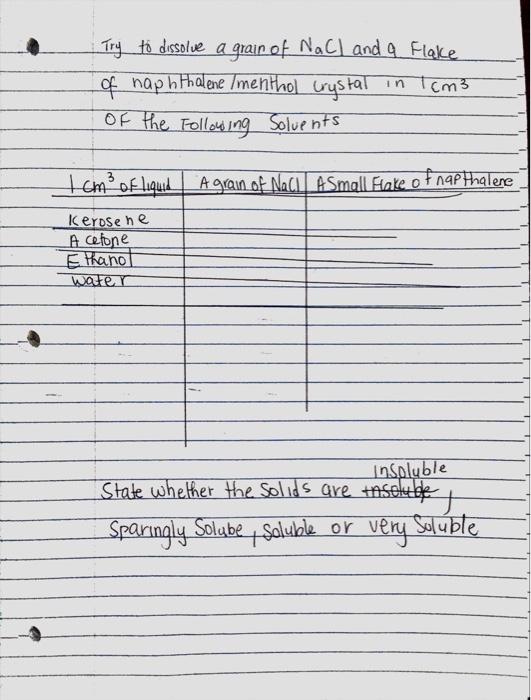 Try to dissolve a grain of NaCl and a Flake
of naphthalene/menthol crystal in 1cm³
OF the Following Solvents
1 cm³ of liquid | A grain of NaCl | A Small Flake of napthalene
Kerosene
Acetone
Ethanol
water
State whether the Solids are insoluble insoluble,
Sparingly Solube, Soluble or very Soluble